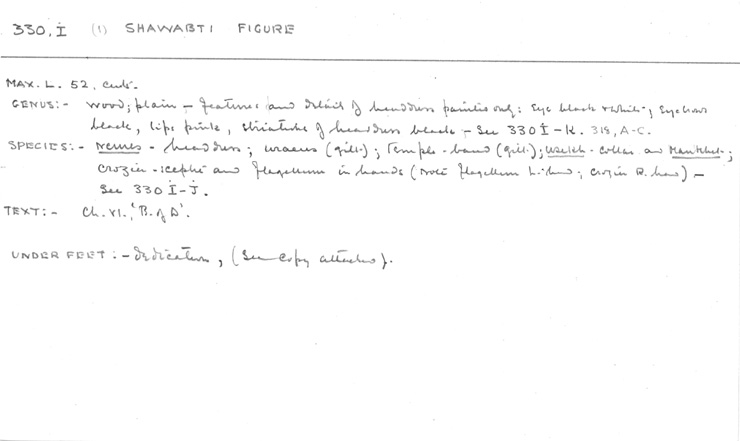 330, I (1) SHAWABTI FIGURE
MAX. L. 52, cents.
GENUS:- wood; plain - features and details of headdress painted only: eye black & white; eyebrows
black, lips pink, striature of headdress black - See 330 I-K. 318, A-C.
SPECIES:- Nemes - headdress; uraeus (gilt); Temple-band (gilt); Usekh-collar and Mankhet;
crozier-sceptre and flagellum in hands (note flagellum L. hand; crozier R. hand) -
See 330 I-J.
TEXT:- Ch. VI, 'B. of D'.
UNDER FEET:- dedication, (see copy attached).